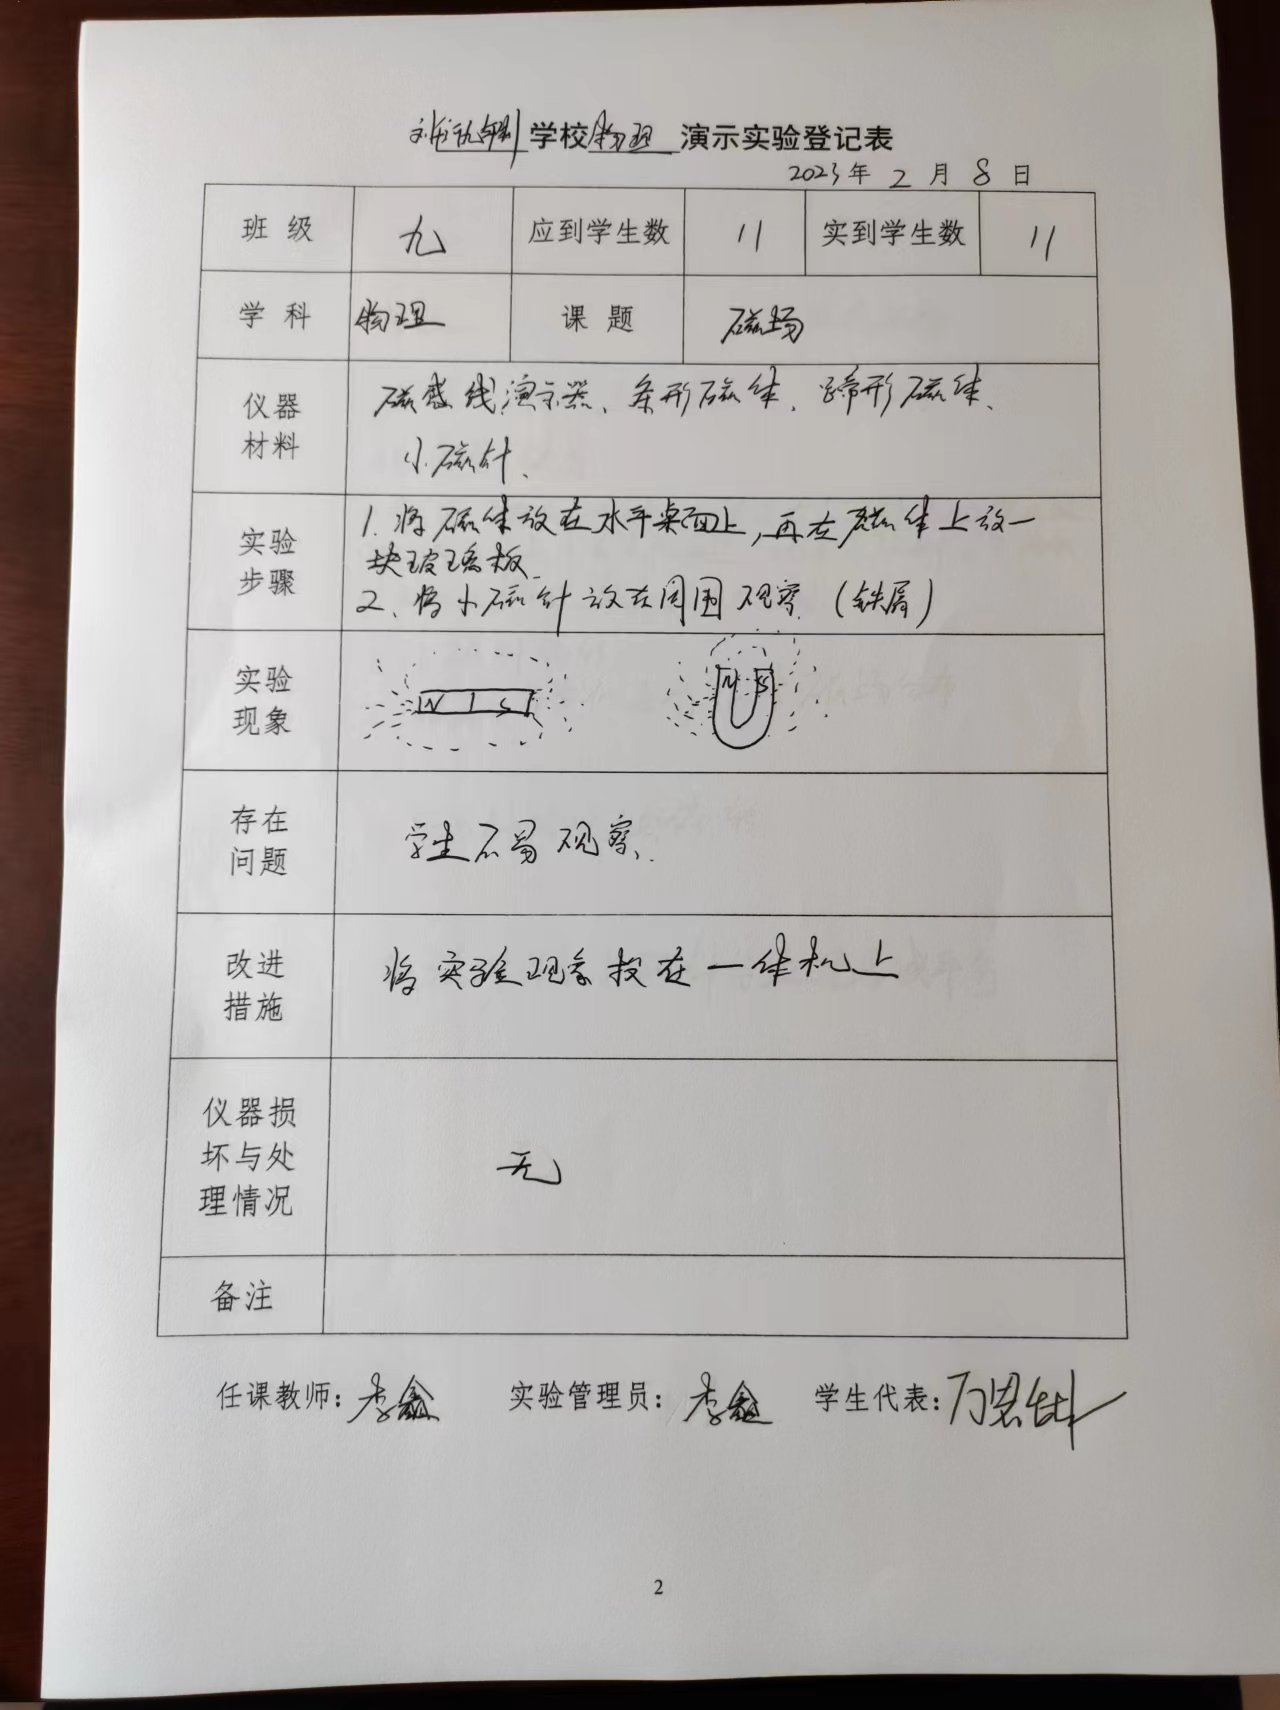 学校物理 演示实验登记表
2023年 2 月 8 日
班 级 九 应到学生数 11 实到学生数 11
学 科 物理 课 题 磁场
仪器
材料
磁感线演示器、条形磁体、蹄形磁体、
小磁针、
实验
步骤
1. 将磁体放在水平桌面上,再在磁体上放一
块玻璃板、
2、将小磁针放在周围观察(铁屑)
实验
现象
N S
N S
存在
问题
学生不易观察、
改进
措施
将实验现象投在一体机上
仪器损
坏与处
理情况
无
备注
任课教师: 李鑫 实验管理员: 李鑫 学生代表:
2